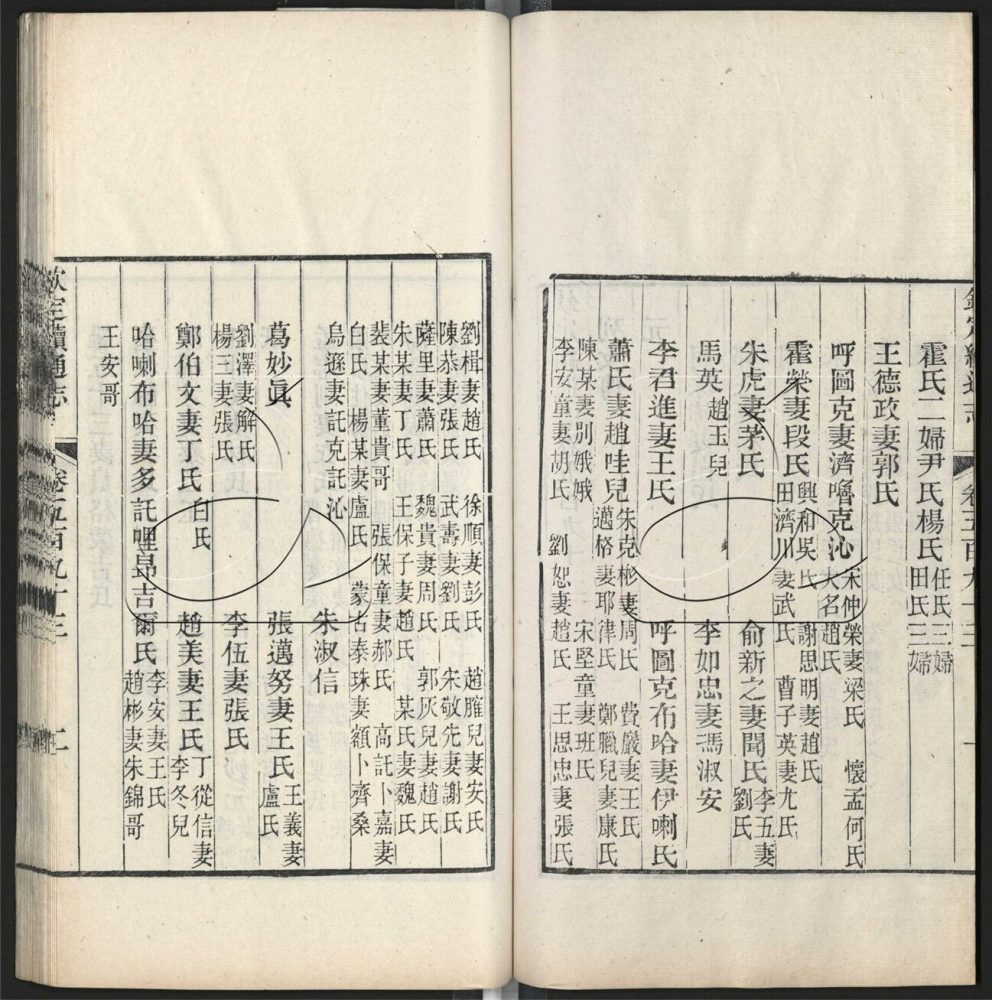 欽定續通志 卷五百九十三 一
霍氏二婦尹氏楊氏 任氏三婦
田氏三婦
王德政妻郭氏
呼圖克妻濟嚕克沁 宋仲榮妻梁氏 懷孟何氏
大名趙氏
霍榮妻段氏 興和吳氏 謝思明妻趙氏
田濟川妻武氏 曹子英妻尤氏
朱虎妻茅氏 俞新之妻聞氏 李五妻
劉氏
馬英 趙玉兒 李如忠妻馮淑安
李君進妻王氏 呼圖克布哈妻伊喇氏
蕭氏妻趙哇兒 朱克彬妻周氏 費巖妻王氏
邁格妻耶律氏 鄭臘兒妻康氏
陳某妻別娥娥 宋堅童妻班氏
李安童妻胡氏 劉恕妻趙氏 王思忠妻張氏
劉楫妻趙氏 徐順妻彭氏 趙脽兒妻安氏
陳恭妻張氏 武壽妻劉氏 宋敬先妻謝氏
薩里妻蕭氏 魏貴妻周氏 郭灰兒妻趙氏
朱某妻丁氏 王保子妻趙氏 某氏妻魏氏
裴某妻董貴哥 張保童妻郝氏 高託卜嘉妻
白氏 楊某妻盧氏 蒙古泰珠妻額卜齊桑
烏遜妻託克託沁 朱淑信
葛妙眞 張邁努妻王氏 王義妻
盧氏
劉澤妻解氏
楊三妻張氏 李伍妻張氏
鄭伯文妻丁氏 白氏 趙美妻王氏 丁從信妻
李冬兒
哈喇布哈妻多託哩昻吉爾氏 李安妻王氏
趙彬妻朱錦哥
王安哥
欽定續通志 卷五百九十三 二